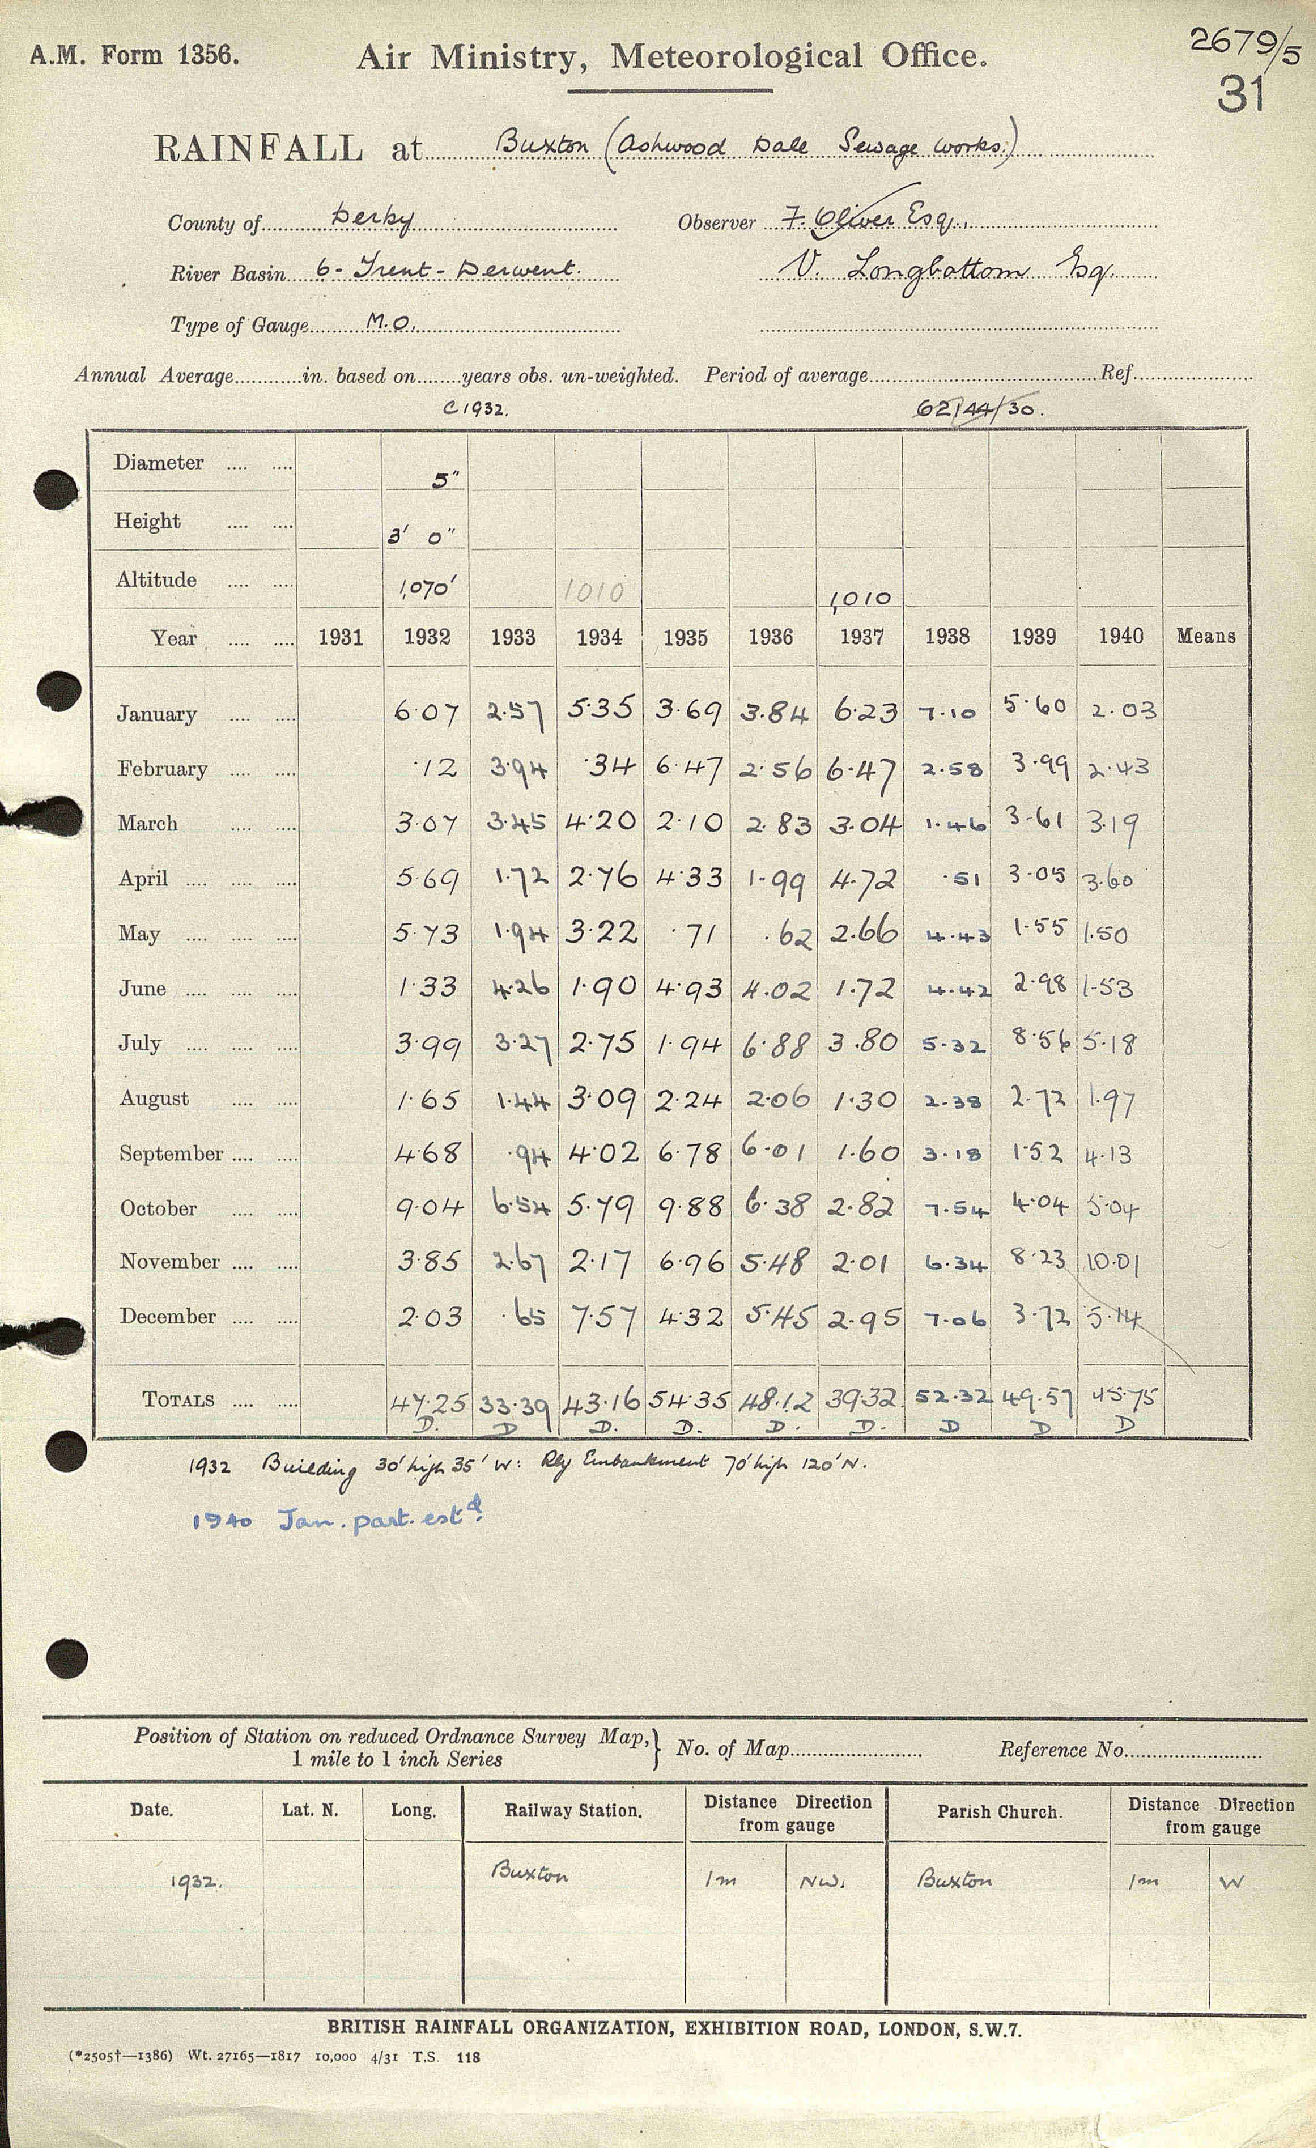 A.M. Form 1356.
Air Ministry, Meteorological Office.
2679/5
31
RAINFALL at Buxton (Ashwood Dale Sewage Works.)
County of Derby Observer F. Oliver Esq.
River Basin 6- Trent - Derwent. V. Longbottom Esq.
Type of Gauge M.O.
Annual Average in. based on years obs. un-weighted. Period of average Ref.
C1932. 62/44/30.
Diameter 5"
Height 3' 0"
Altitude 1,070' 1010 1,010
Year 1931 1932 1933 1934 1935 1936 1937 1938 1939 1940 Means
January 6·07 2·57 5·35 3·69 3·84 6·23 7·10 5·60 2·03
February ·12 3·94 ·34 6·47 2·56 6·47 2·58 3·99 2·43
March 3·07 3·45 4·20 2·10 2·83 3·04 1·46 3·61 3·19
April 5·69 1·72 2·76 4·33 1·99 4·72 ·51 3·05 3·60
May 5·73 1·94 3·22 ·71 ·62 2·66 4·43 1·55 1·50
June 1·33 4·26 1·90 4·93 4·02 1·72 4·42 2·98 1·53
July 3·99 3·27 2·75 1·94 6·88 3·80 5·32 8·56 5·18
August 1·65 1·44 3·09 2·24 2·06 1·30 2·38 2·72 1·97
September 4·68 ·94 4·02 6·78 6·01 1·60 3·18 1·52 4·13
October 9·04 6·54 5·79 9·88 6·38 2·82 7·54 4·04 5·04
November 3·85 2·67 2·17 6·96 5·48 2·01 6·34 8·23 10·01
December 2·03 ·65 7·57 4·32 5·45 2·95 7·06 3·72 5·14
TOTALS 47·25 33·39 43·16 54·35 48·12 39·32 52·32 49·57 45·75
D. D D. D. D. D. D D D
1932 Building 30' high 35' W: Rly Embankment 70' high 120' N.
1940 Jan. part. estd.
Position of Station on reduced Ordnance Survey Map,
1 mile to 1 inch Series } No. of Map Reference No.
Date. Lat. N. Long. Railway Station. Distance Direction from gauge Parish Church. Distance Direction from gauge
1932. Buxton 1m NW. Buxton 1m W
BRITISH RAINFALL ORGANIZATION, EXHIBITION ROAD, LONDON, S.W.7.
(*2505†—1386) Wt. 27165—1817 10,000 4/31 T.S. 118